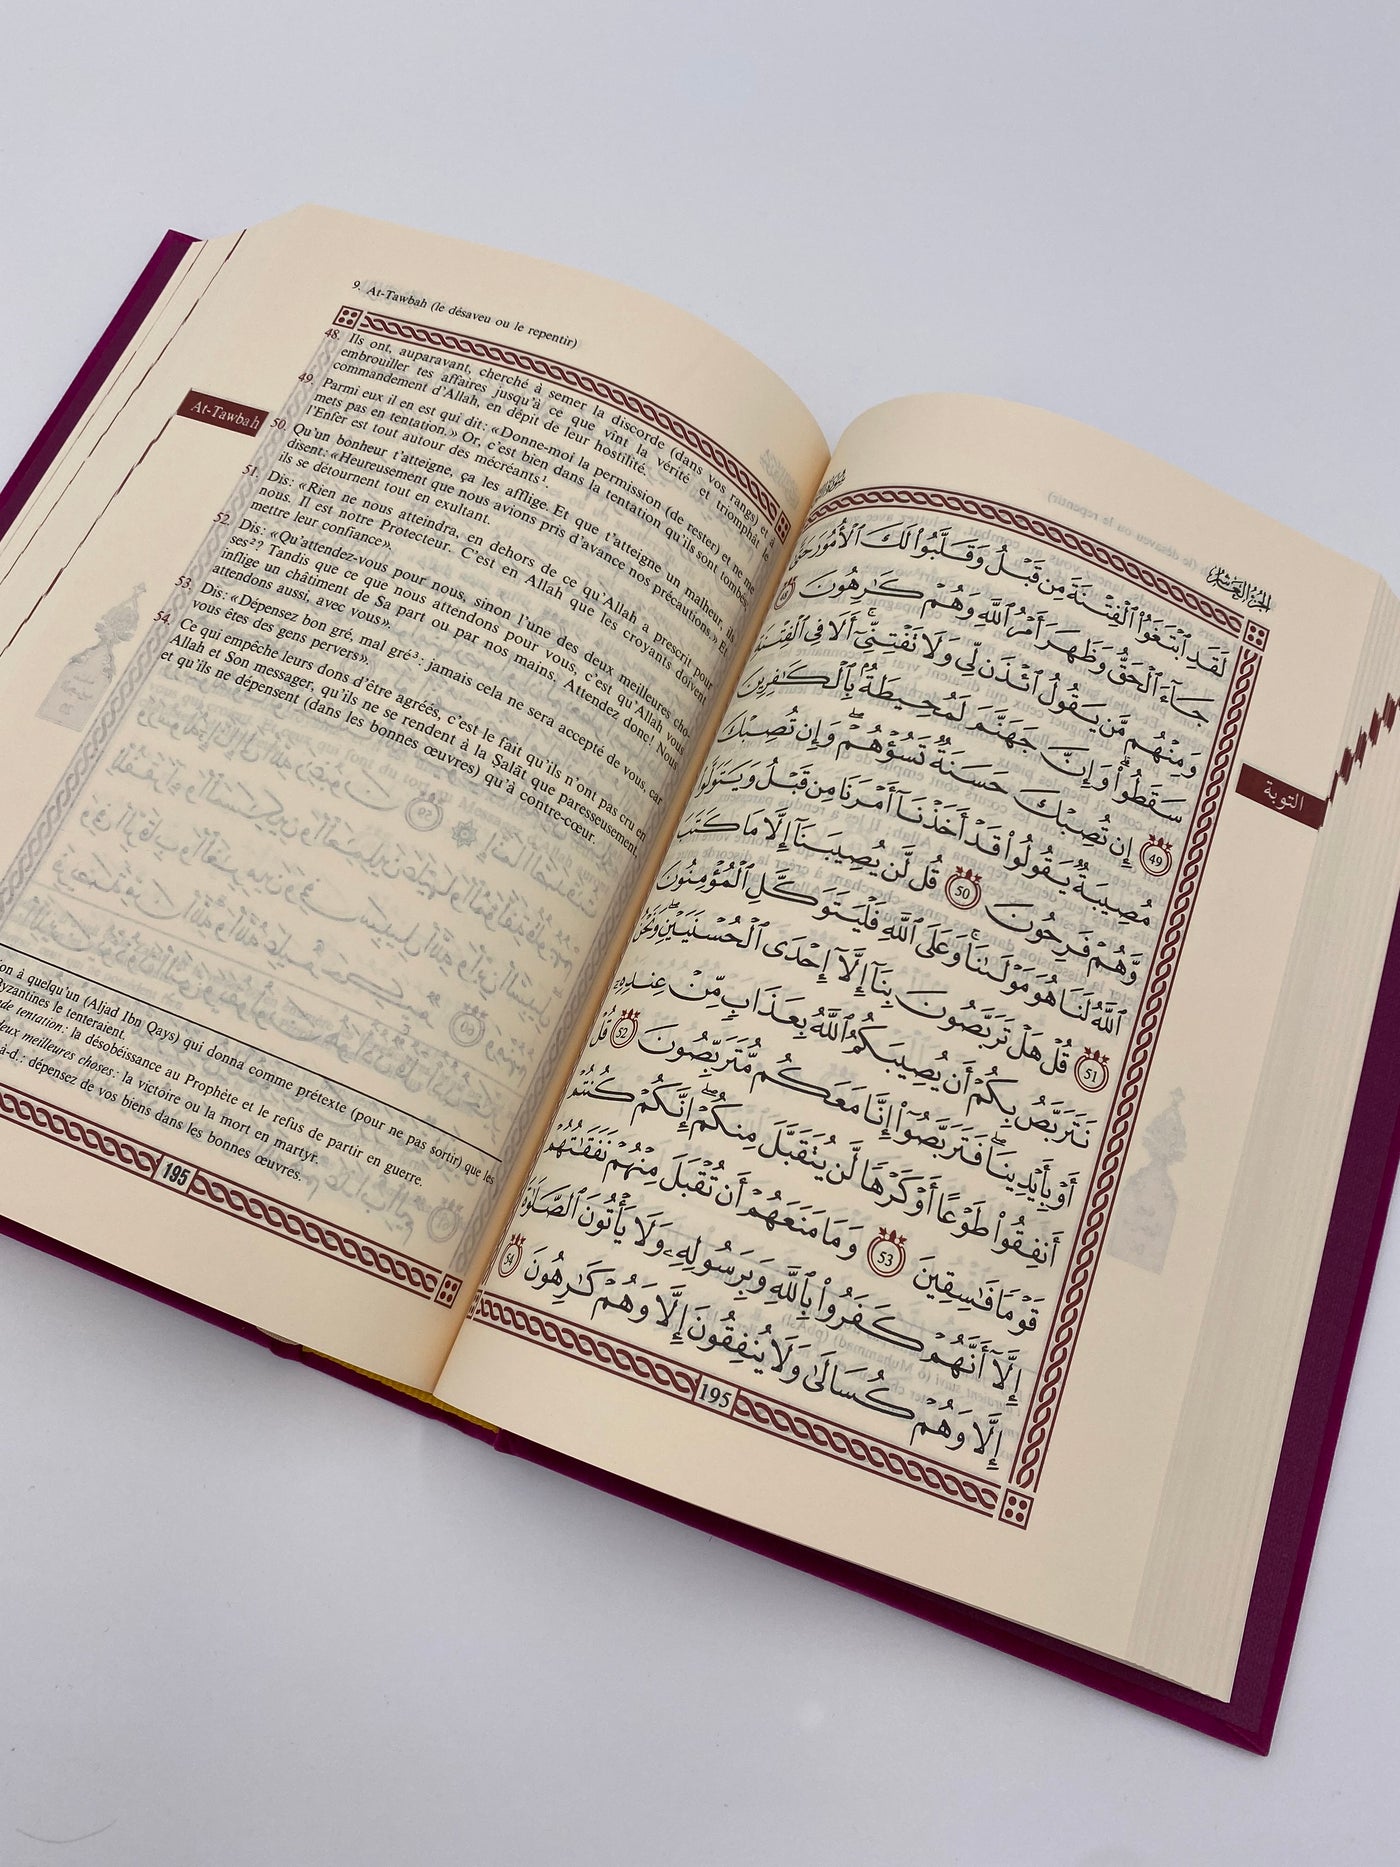 9. At-Tawbah (le désaveu ou le repentir)
At-Tawbah
48. Ils ont, auparavant, cherché à semer la discorde (dans vos rangs) et à
embrouiller tes affaires jusqu'à ce que vînt la vérité et triomphât le
commandement d'Allah, en dépit de leur hostilité.
49. Parmi eux il en est qui dit: «Donne-moi la permission (de rester) et ne me
mets pas en tentation.» Or, c'est bien dans la tentation qu'ils sont tombés;
l'Enfer est tout autour des mécréants¹.
50. Qu'un bonheur t'atteigne, ça les afflige. Et que t'atteigne un malheur, ils
disent: «Heureusement que nous avions pris d'avance nos précautions.» Et
ils se détournent tout en exultant.
51. Dis: «Rien ne nous atteindra, en dehors de ce qu'Allah a prescrit pour
nous. Il est notre Protecteur. C'est en Allah que les croyants doivent
mettre leur confiance».
52. Dis: «Qu'attendez-vous pour nous, sinon l'une des deux meilleures cho-
ses²? Tandis que ce que nous attendons pour vous, c'est qu'Allah vous
inflige un châtiment de Sa part ou par nos mains. Attendez donc! Nous
attendons aussi, avec vous».
53. Dis: «Dépensez bon gré, mal gré³: jamais cela ne sera accepté de vous, car
vous êtes des gens pervers».
54. Ce qui empêche leurs dons d'être agréés, c'est le fait qu'ils n'ont pas cru en
Allah et Son messager, qu'ils ne se rendent à la Ṣalāt que paresseusement,
et qu'ils ne dépensent (dans les bonnes œuvres) qu'à contre-cœur.
à quelqu'un (Aljad Ibn Qays) qui donna comme prétexte (pour ne pas sortir) que les
Byzantines le tenteraient.
tentation: la désobéissance au Prophète et le refus de partir en guerre.
deux meilleures choses: la victoire ou la mort en martyr.
à-d.: dépensez de vos biens dans les bonnes œuvres.
195
الجزء العاشر
التوبة
لَقَدِ ٱبْتَغَوُا۟ ٱلْفِتْنَةَ مِن قَبْلُ وَقَلَّبُوا۟ لَكَ ٱلْأُمُورَ حَتَّىٰ
جَآءَ ٱلْحَقُّ وَظَهَرَ أَمْرُ ٱللَّهِ وَهُمْ كَـٰرِهُونَ 48
وَمِنْهُم مَّن يَقُولُ ٱئْذَن لِّى وَلَا تَفْتِنِّىٓ ۚ أَلَا فِى ٱلْفِتْنَةِ
سَقَطُوا۟ ۗ وَإِنَّ جَهَنَّمَ لَمُحِيطَةٌۢ بِٱلْكَـٰفِرِينَ
49 إِن تُصِبْكَ حَسَنَةٌ تَسُؤْهُمْ ۖ وَإِن تُصِبْكَ
مُصِيبَةٌ يَقُولُوا۟ قَدْ أَخَذْنَآ أَمْرَنَا مِن قَبْلُ وَيَتَوَلَّوا۟
وَّهُمْ فَرِحُونَ 50 قُل لَّن يُصِيبَنَآ إِلَّا مَا كَتَبَ
ٱللَّهُ لَنَا هُوَ مَوْلَىٰنَا ۚ وَعَلَى ٱللَّهِ فَلْيَتَوَكَّلِ ٱلْمُؤْمِنُونَ
51 قُلْ هَلْ تَرَبَّصُونَ بِنَآ إِلَّآ إِحْدَى ٱلْحُسْنَيَيْنِ ۖ وَنَحْنُ
نَتَرَبَّصُ بِكُمْ أَن يُصِيبَكُمُ ٱللَّهُ بِعَذَابٍ مِّنْ عِندِهِۦٓ
أَوْ بِأَيْدِينَا ۖ فَتَرَبَّصُوٓا۟ إِنَّا مَعَكُم مُّتَرَبِّصُونَ 52 قُلْ
أَنفِقُوا۟ طَوْعًا أَوْ كَرْهًا لَّن يُتَقَبَّلَ مِنكُمْ ۖ إِنَّكُمْ كُنتُمْ
قَوْمًا فَـٰسِقِينَ 53 وَمَا مَنَعَهُمْ أَن تُقْبَلَ مِنْهُمْ نَفَقَـٰتُهُمْ
إِلَّآ أَنَّهُمْ كَفَرُوا۟ بِٱللَّهِ وَبِرَسُولِهِۦ وَلَا يَأْتُونَ ٱلصَّلَوٰةَ
إِلَّا وَهُمْ كُسَالَىٰ وَلَا يُنفِقُونَ إِلَّا وَهُمْ كَـٰرِهُونَ 54
195